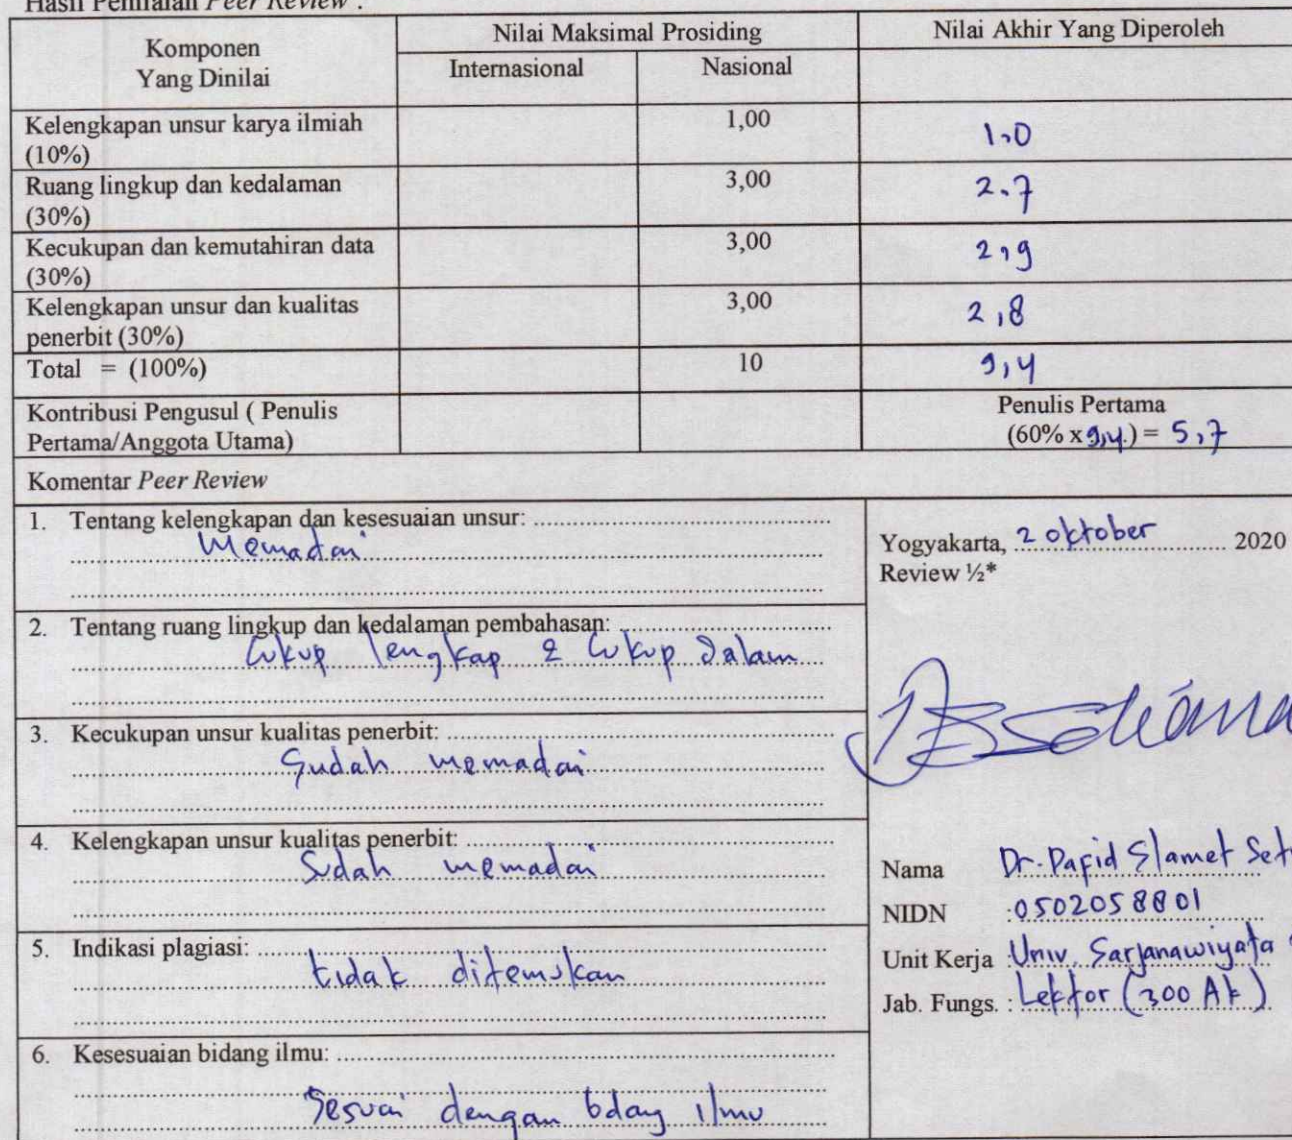 Hasil Penilaian Peer Review :
Komponen
Yang Dinilai
Nilai Maksimal Prosiding
Nilai Akhir Yang Diperoleh
Internasional
Nasional
Kelengkapan unsur karya ilmiah
(10%)
1,00
1,0
Ruang lingkup dan kedalaman
(30%)
3,00
2.7
Kecukupan dan kemutahiran data
(30%)
3,00
2,9
Kelengkapan unsur dan kualitas
penerbit (30%)
3,00
2,8
Total = (100%)
10
9,4
Kontribusi Pengusul ( Penulis
Pertama/Anggota Utama)
Penulis Pertama
(60% x 9,4.) = 5,7
Komentar Peer Review
1. Tentang kelengkapan dan kesesuaian unsur:
Memadai
2. Tentang ruang lingkup dan kedalaman pembahasan:
Cukup lengkap & Cukup dalam
3. Kecukupan unsur kualitas penerbit:
Sudah memadai
4. Kelengkapan unsur kualitas penerbit:
Sudah memadai
5. Indikasi plagiasi:
tidak ditemukan
6. Kesesuaian bidang ilmu:
Sesuai dengan bdang ilmu
Yogyakarta, 2 oktober 2020
Review ½*
Nama Dr. Dafid Slamet Set
NIDN :0502058801
Unit Kerja :Univ. Sarjanawiyata
Jab. Fungs. : Lektor (300 AK)